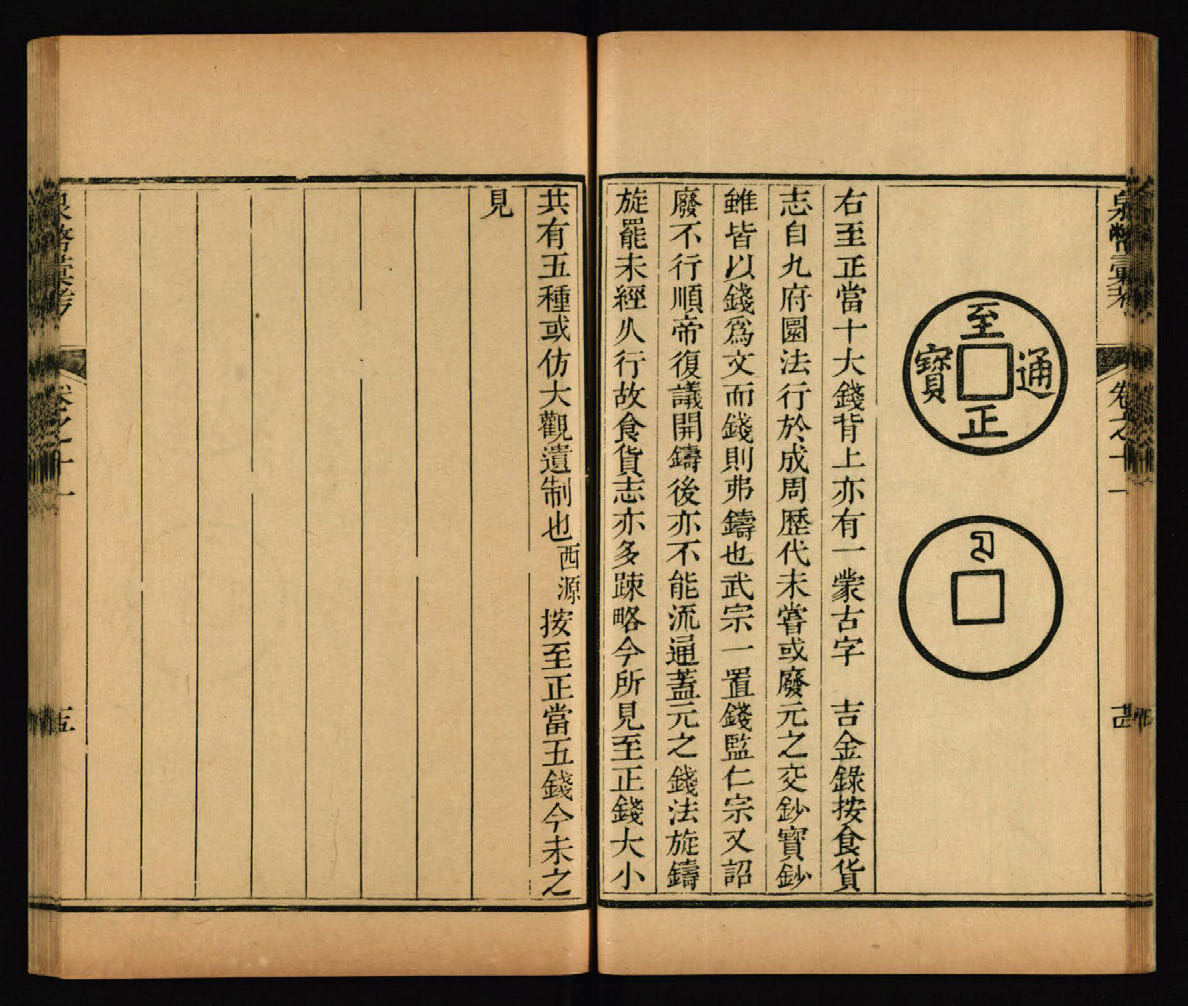 泉幣彙考
卷之十一
至正通寶
右至正當十大錢背上亦有一蒙古字　吉金錄按食貨
志自九府圜法行於成周歷代未嘗或廢元之交鈔寶鈔
雖皆以錢爲文而錢則弗鑄也武宗一置錢監仁宗又詔
廢不行順帝復議開鑄後亦不能流通蓋元之錢法旋鑄
旋罷未經久行故食貨志亦多踈略今所見至正錢大小
共有五種或仿大觀遺制也西源按至正當五錢今未之
見
泉幣彙考
卷之十一